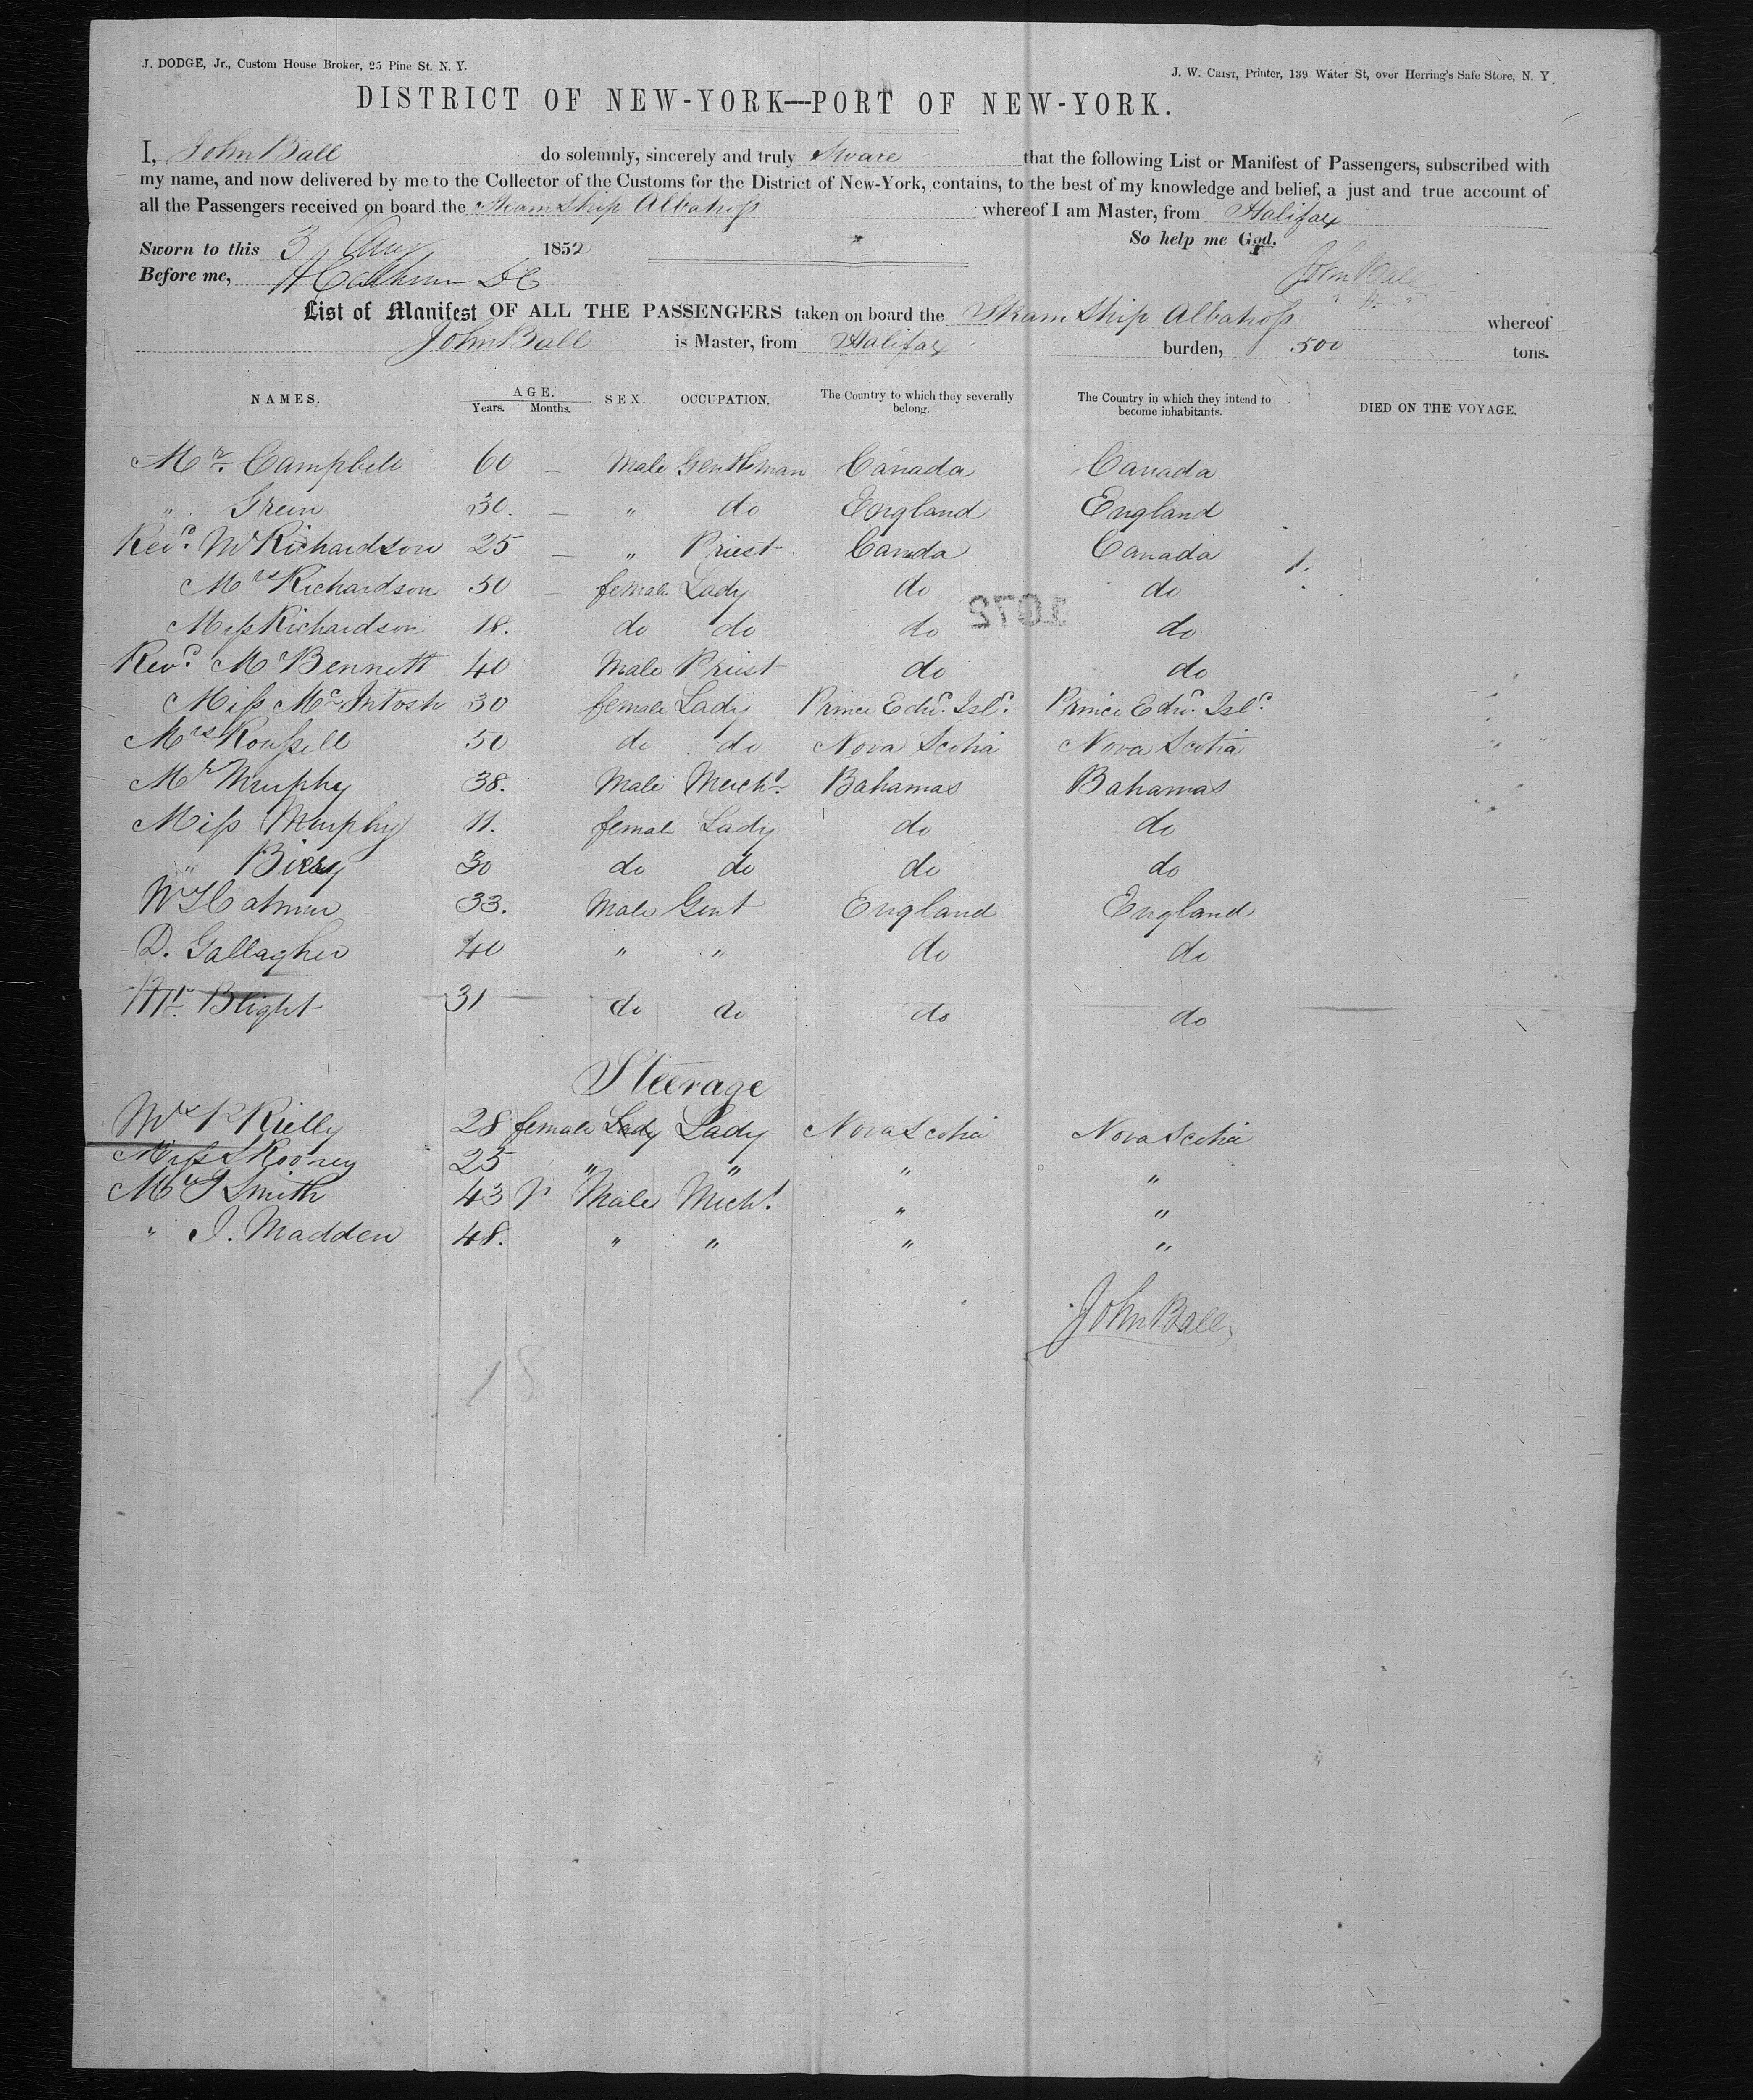 J. DODGE, Jr., Custom House Broker, 25 Pine St. N. Y.
J. W. CRIST, Printer, 139 Water St, over Herring's Safe Store, N. Y.
DISTRICT OF NEW-YORK—PORT OF NEW-YORK.
I, John Ball do solemnly, sincerely and truly Sware that the following List or Manifest of Passengers, subscribed with
my name, and now delivered by me to the Collector of the Customs for the District of New-York, contains, to the best of my knowledge and belief, a just and true account of
all the Passengers received on board the Steam Ship Albatross whereof I am Master, from Halifax
So help me God.
Sworn to this 3 Aug 1852
Before me, DC
John Ball
List of Manifest OF ALL THE PASSENGERS taken on board the Steam Ship Albatross whereof
John Ball is Master, from Halifax burden, 500 tons.
NAMES. AGE. Years. Months. SEX. OCCUPATION. The Country to which they severally belong. The Country in which they intend to become inhabitants. DIED ON THE VOYAGE.
Mr. Campbell 60 — Male Gentleman Canada Canada
" Green 30. — " do England England
Revd. Mr Richardson 25 — " Priest Canada Canada
Mrs Richardson 50 — female Lady do do
1072
Miss Richardson 18. do do do do
Revd. Mr Bennett 40 Male Priest do do
Miss McIntosh 30 female Lady Prince Edwd. Isld. Prince Edwd. Isld.
Mrs Roussell 50 do do Nova Scotia Nova Scotia
Mr Murphy 38. Male Mercht. Bahamas Bahamas
Miss Murphy 11. female Lady do do
" 30 do do do do
33. Male Gent England England
D. Gallagher 40 " " do do
Mr. Blight 31 do do do do
Steerage
Mrs Rielly 28 female Lady Lady Nova Scotia Nova Scotia
Miss Rooney 25 " " " "
Mr J Smith 43 Male Mercht. " "
" J. Madden 48. " " " "
John Ball
18